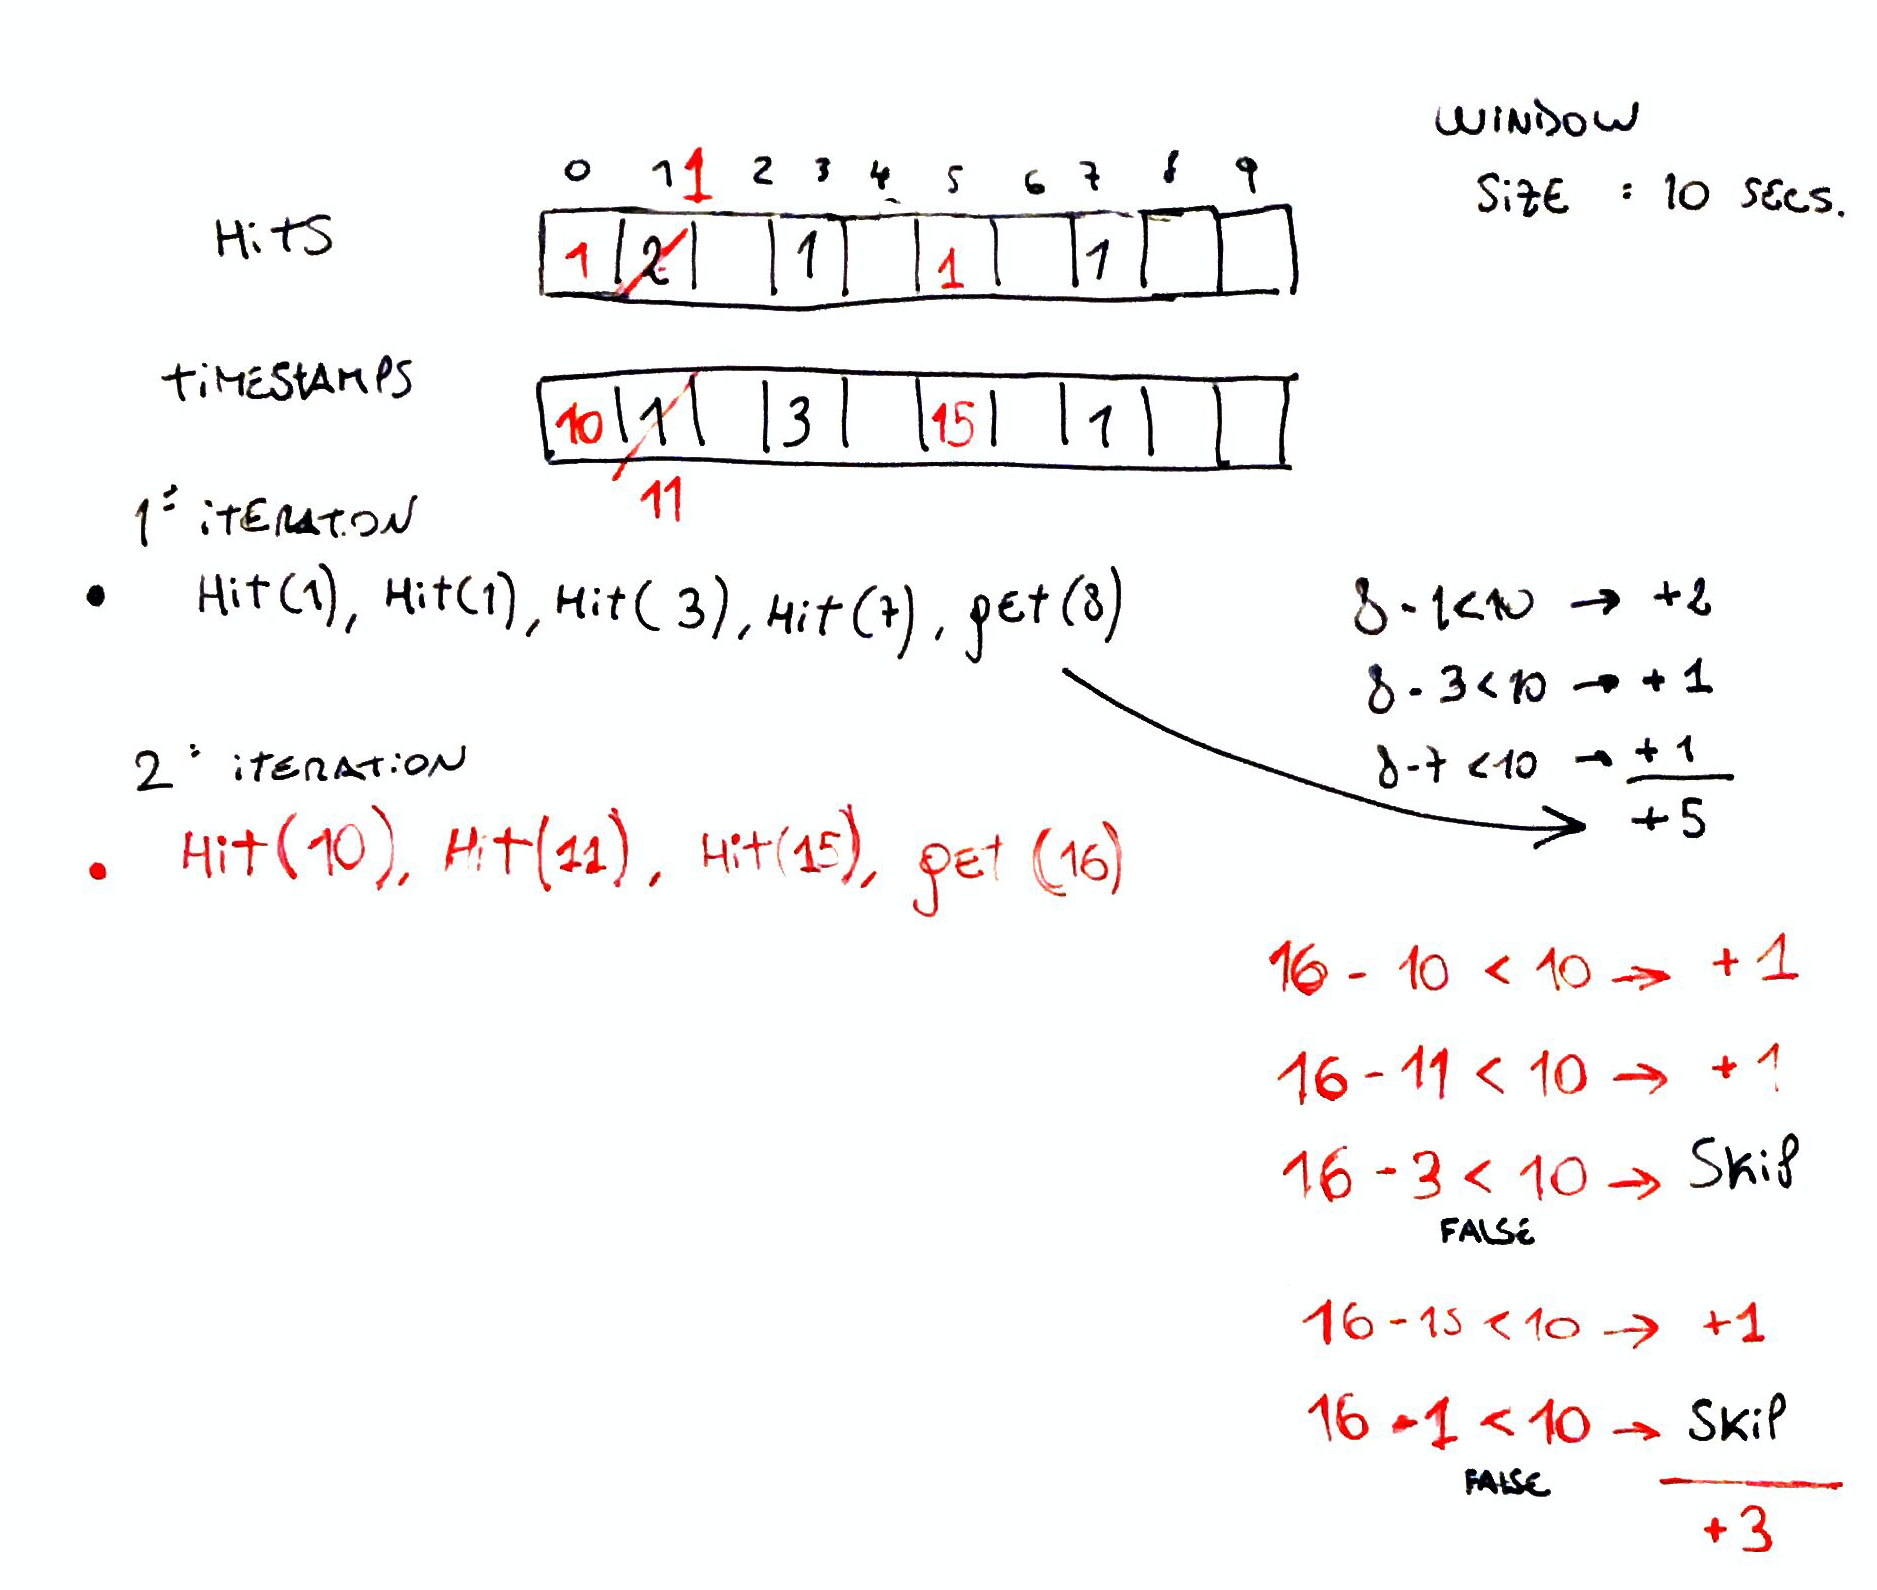 WINDOW
SIZE : 10 SECS.
0 1 1 2 3 4 5 6 7 8 9
HITS 1 2 1 1 1
TIMESTAMPS 10 1 3 15 1
11
1º ITERATION
• Hit(1), Hit(1), Hit(3), Hit(7), get(8)
8-1<10 → +2
8-3<10 → +1
8-7<10 → +1
+5
2º ITERATION
• Hit(10), Hit(11), Hit(15), get(16)
16-10<10 → +1
16-11<10 → +1
16-3<10 → SKIP
FALSE
16-15<10 → +1
16-1<10 → SKIP
FALSE
+3